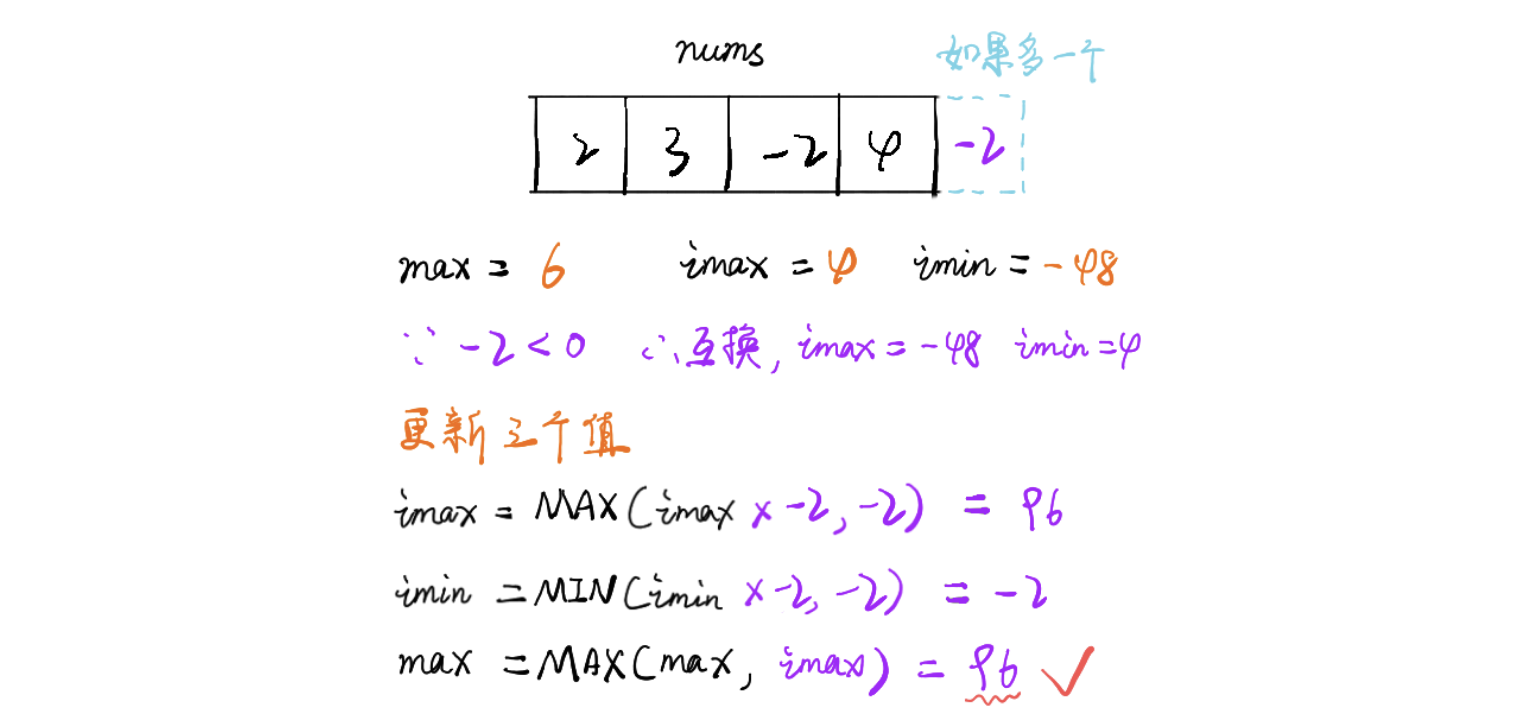 nums 如果多一个
2 3 -2 4 -2
max = 6 imax = 4 imin = -48
∵ -2 < 0 ∴互换, imax = -48 imin = 4
更新三个值
imax = MAX(imax x -2, -2) = 96
imin = MIN(imin x -2, -2) = -2
max = MAX(max, imax) = 96 ✓